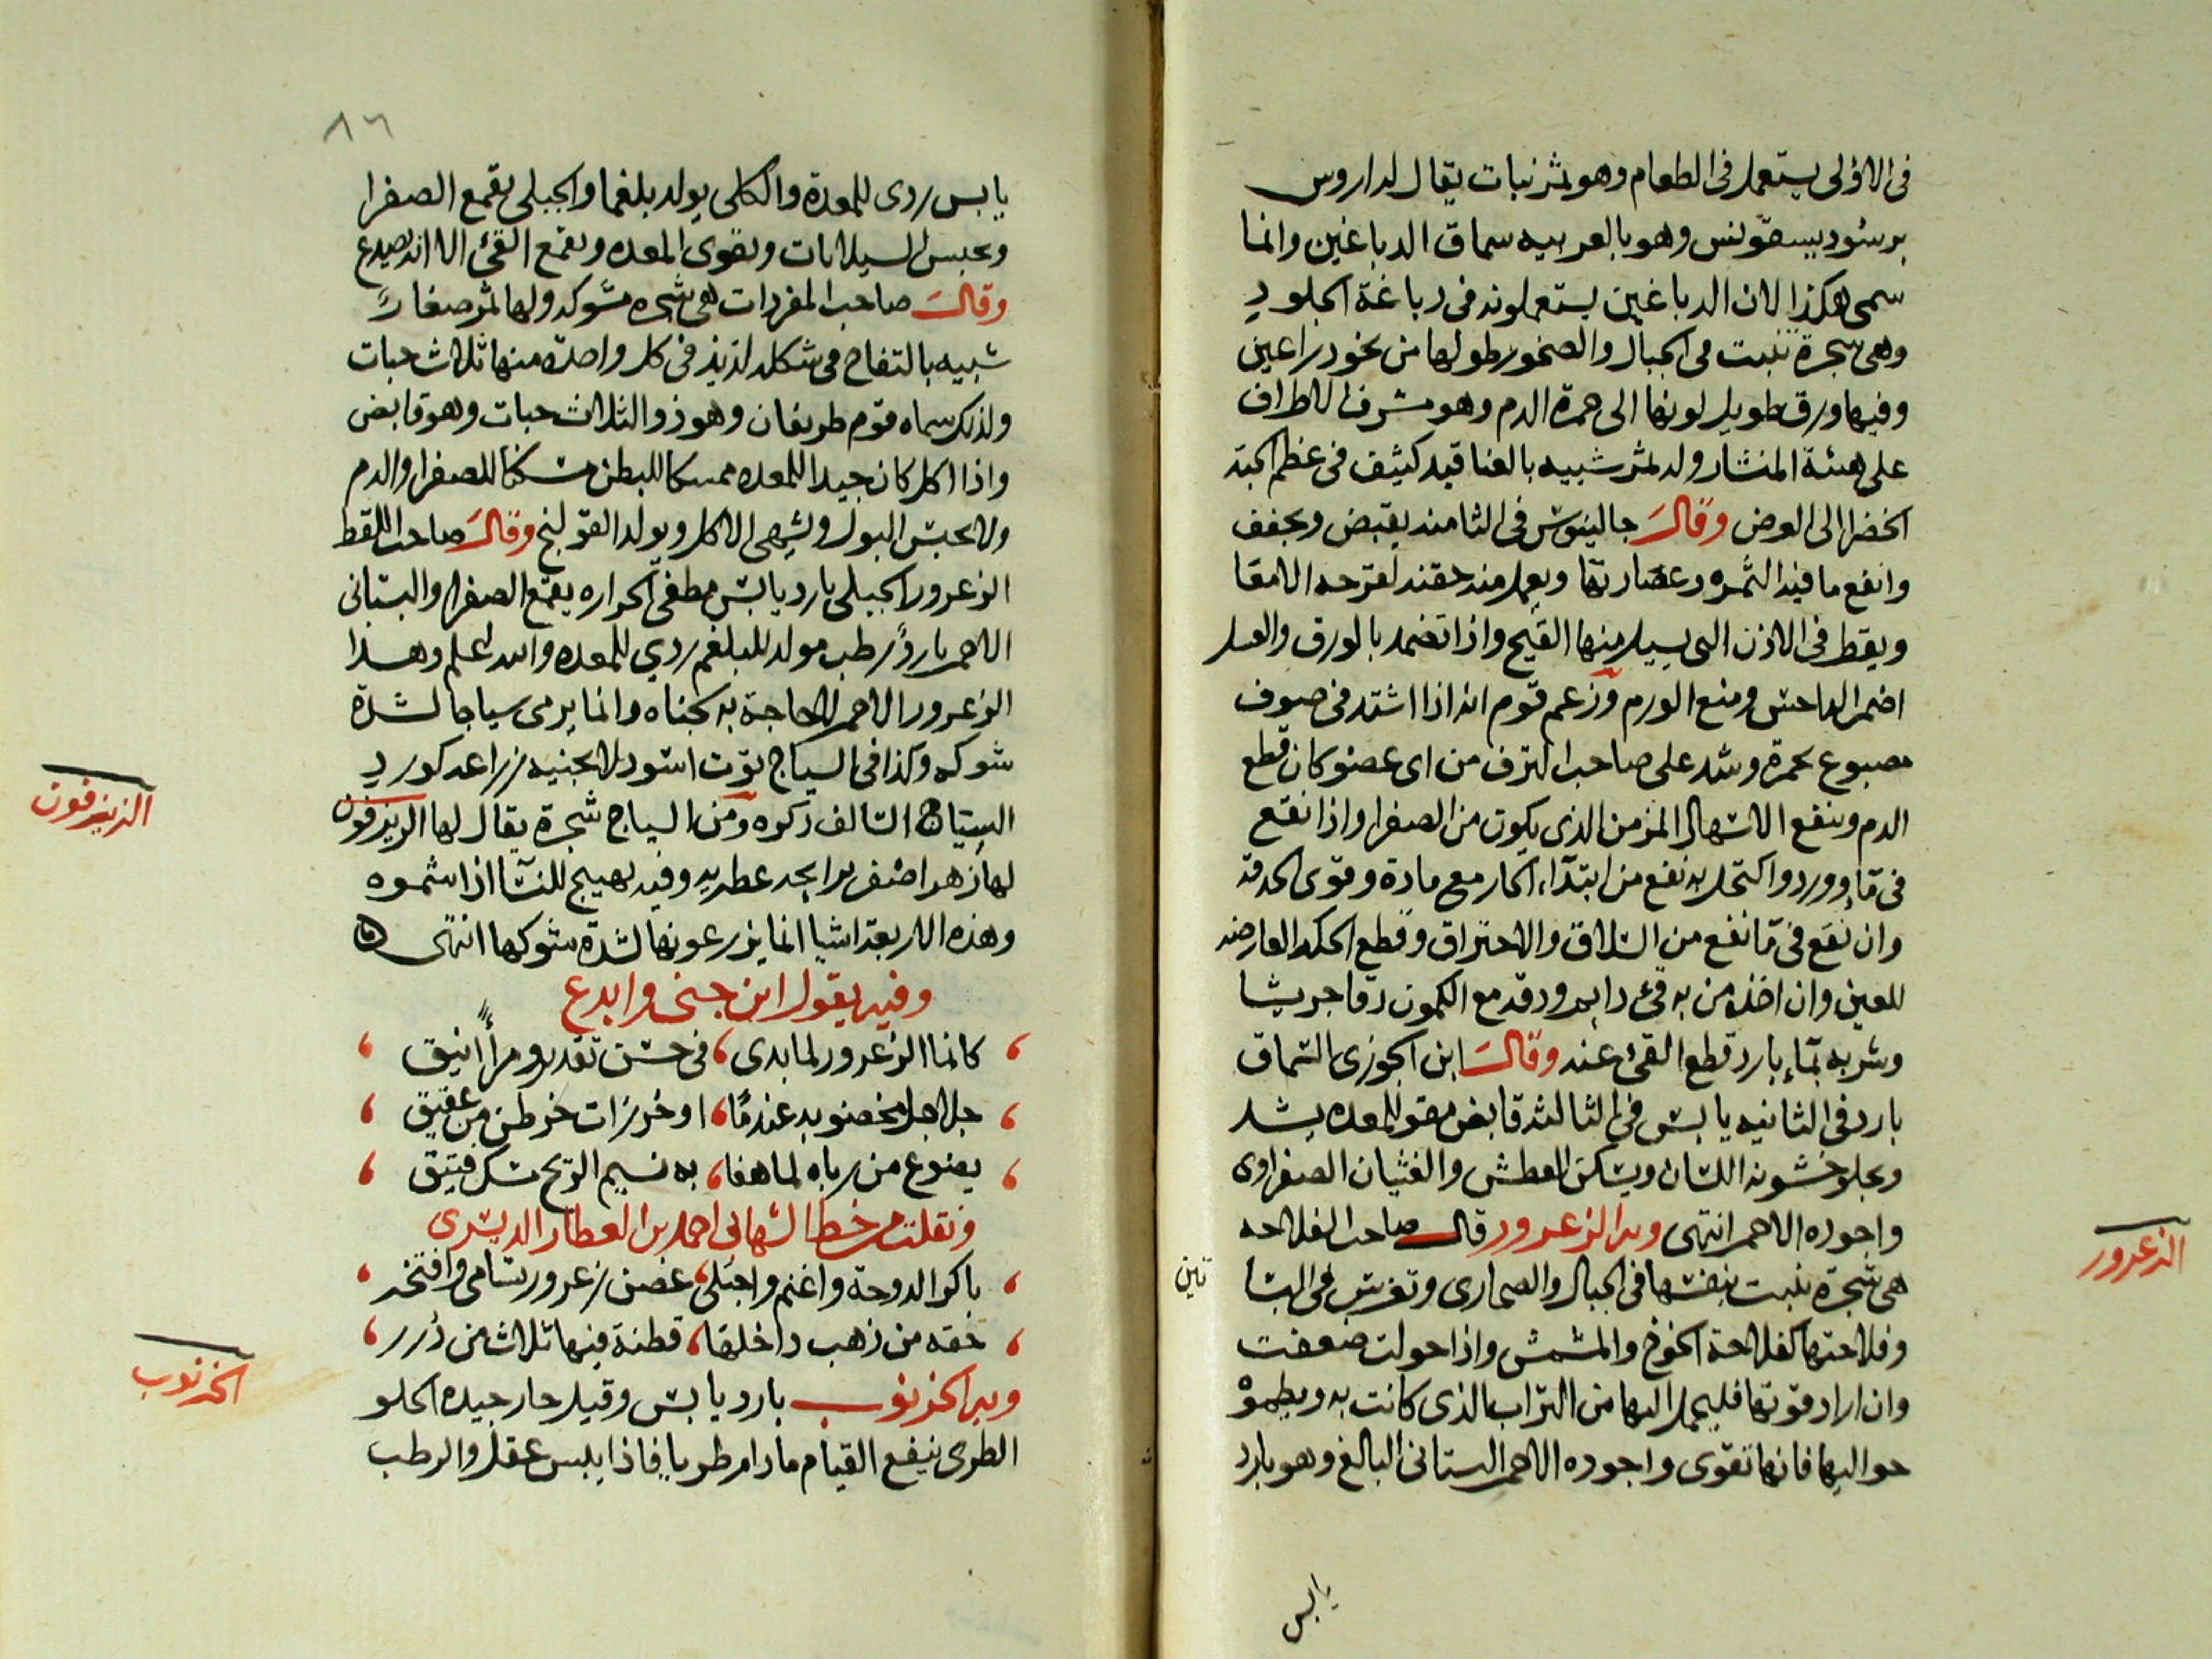 فى الاولى يستعمل فى الطعام وهو ثمر نبات يقال له اروس
برسود بيسقونس وهو بالعربيه سماق الدباغين وانما
سمى هكذا لان الدباغين يستعملونه فى دباغة الجلود
وهى شجرة تنبت فى الجبال والصخور طولها من نحو ذراعين
وفيها ورق طويل لونها الى حمرة الدم وهو مشرف الاطراف
على هيئة المنشار وله ثمر شبيه بالعناقيد كثيف فى عظم الحبة
الخضرا الى العرض وقال جالينوس فى الثامنه يقبض ويجفف
وانفع ما فيه الثمره وعصارتها ويعمل منه حقنه لقرحه الامعا
ويقطر فى الاذن التى يسيل منها القيح واذا تضمد بالورق والعسل
اضمر الداحس ومنع الورم وزعم قوم انه اذا اشتد فى صوف
مصبوغ بحمرة وشد على صاحب النزف من اى عضو كان قطع
الدم وينفع الاسهال المزمن الذى يكون من الصفرا واذا نقع
فى ماء وورد واكتحل به نفع من ابتداء الحار مع مادة وقوى الحدقة
وان نقع فى ما نفع من السلاق والاحتراق وقطع الحكه العارضه
للعين وان اخذ من به قىء دايم ودقه مع الكمون دقا جريشا
وشربه بماء بارد قطع القىء عنه وقال ابن الجوزى السماق
بارد فى الثانيه يابس فى الثالثه قابض مقو للمعده يشد
ويجلو خشونه اللسان ويسكن العطش والغثيان الصفراوى
واجوده الاحمر انتهى وبه الزعرور قال صاحب الفلاحه
هى شجرة تنبت بنفسها فى الجبال والصحارى وتغرس فى البسا
تين
وفلاحتها كفلاحة الخوخ والمشمش واذا حولت ضعفت
وان اراد قوتها فليحمل اليها من التراب الذى كانت به ويطموه
حواليها فانها تقوى واجوده الاحمر البستانى البالغ وهو بارد
يابس
الزعرور
٨٦
يابس ردى للمعدة والكلى يولد بلغما والجبلى يقمع الصفرا
ويحبس السيلانات ويقوى المعده ويقمع القىء الا انه يصدع
وقال صاحب المفردات هى شجره مشوكه ولها ثمر صغار
شبيه بالتفاح فى شكله لذيذ فى كل واحدة منها ثلاث حبات
ولذلك سماه قوم طريفان وهو ذو الثلاث حبات وهو قابض
واذا اكل كان جيدا للمعده ممسكا للبطن مسكنا للصفرا والدم
ولا يحبس البول ويشهى الاكل ويولد القولنج وقال صاحب اللقط
الزعرور الجبلى بارد يابس مطفى الحراره يقمع الصفرا والبستانى
الاحمر بارد رطب مولد للبلغم ردي للمعده والله اعلم وهذا
الزعرور الاحمر لا حاجة به لجناه وانما يرمى سياجا لشدة
شوكه وكذا فى السياج توت اسود لا يجنيه زراعه كورد
السياج السالف ذكره ومن السياج شجرة يقال لها الزيزفون
لها زهر اصفر برايحه عطريه وفيه تهييج للنسا اذا شموه
وهذه الاربعة اشيا انما يزرعونها لشدة شوكها انتهى
وفيه يقول ابن جنى وابدع
كانما الزعرور لما بدى، فى حسن تقدير ومرأً انيق
جلاجل مخضوبه عندما، او خرزات خرطن من عقيق
يضوع من رياه لما هفا، به نسيم الريح مسك فتيق
ونقلت من خط الشهابى احمد بن العطار الدنيسرى
باكر الدوحة واغنم واجتلى، غصن زعرور تسامى وافتخر
حقه من ذهب داخلها، قطنة فيها ثلاث من درر
وبه الخرنوب بارد يابس وقيل حار جيده الحلو
الطرى ينفع القيام ما دام طريا فاذا يبس عقل والرطب
الزيزفون
الخرنوب